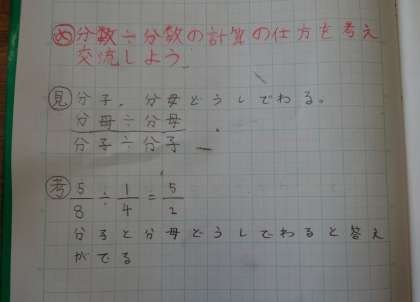 め 分数÷分数の計算の仕方を考え
交流しよう
見 分子、分母どうしでわる。
分母÷分母
分子÷分子
考 5/8 ÷ 1/4 = 5/2
分子と分母どうしでわると答え
がでる